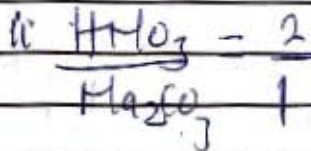 ii HNO3 = 2
Na2CO3 1